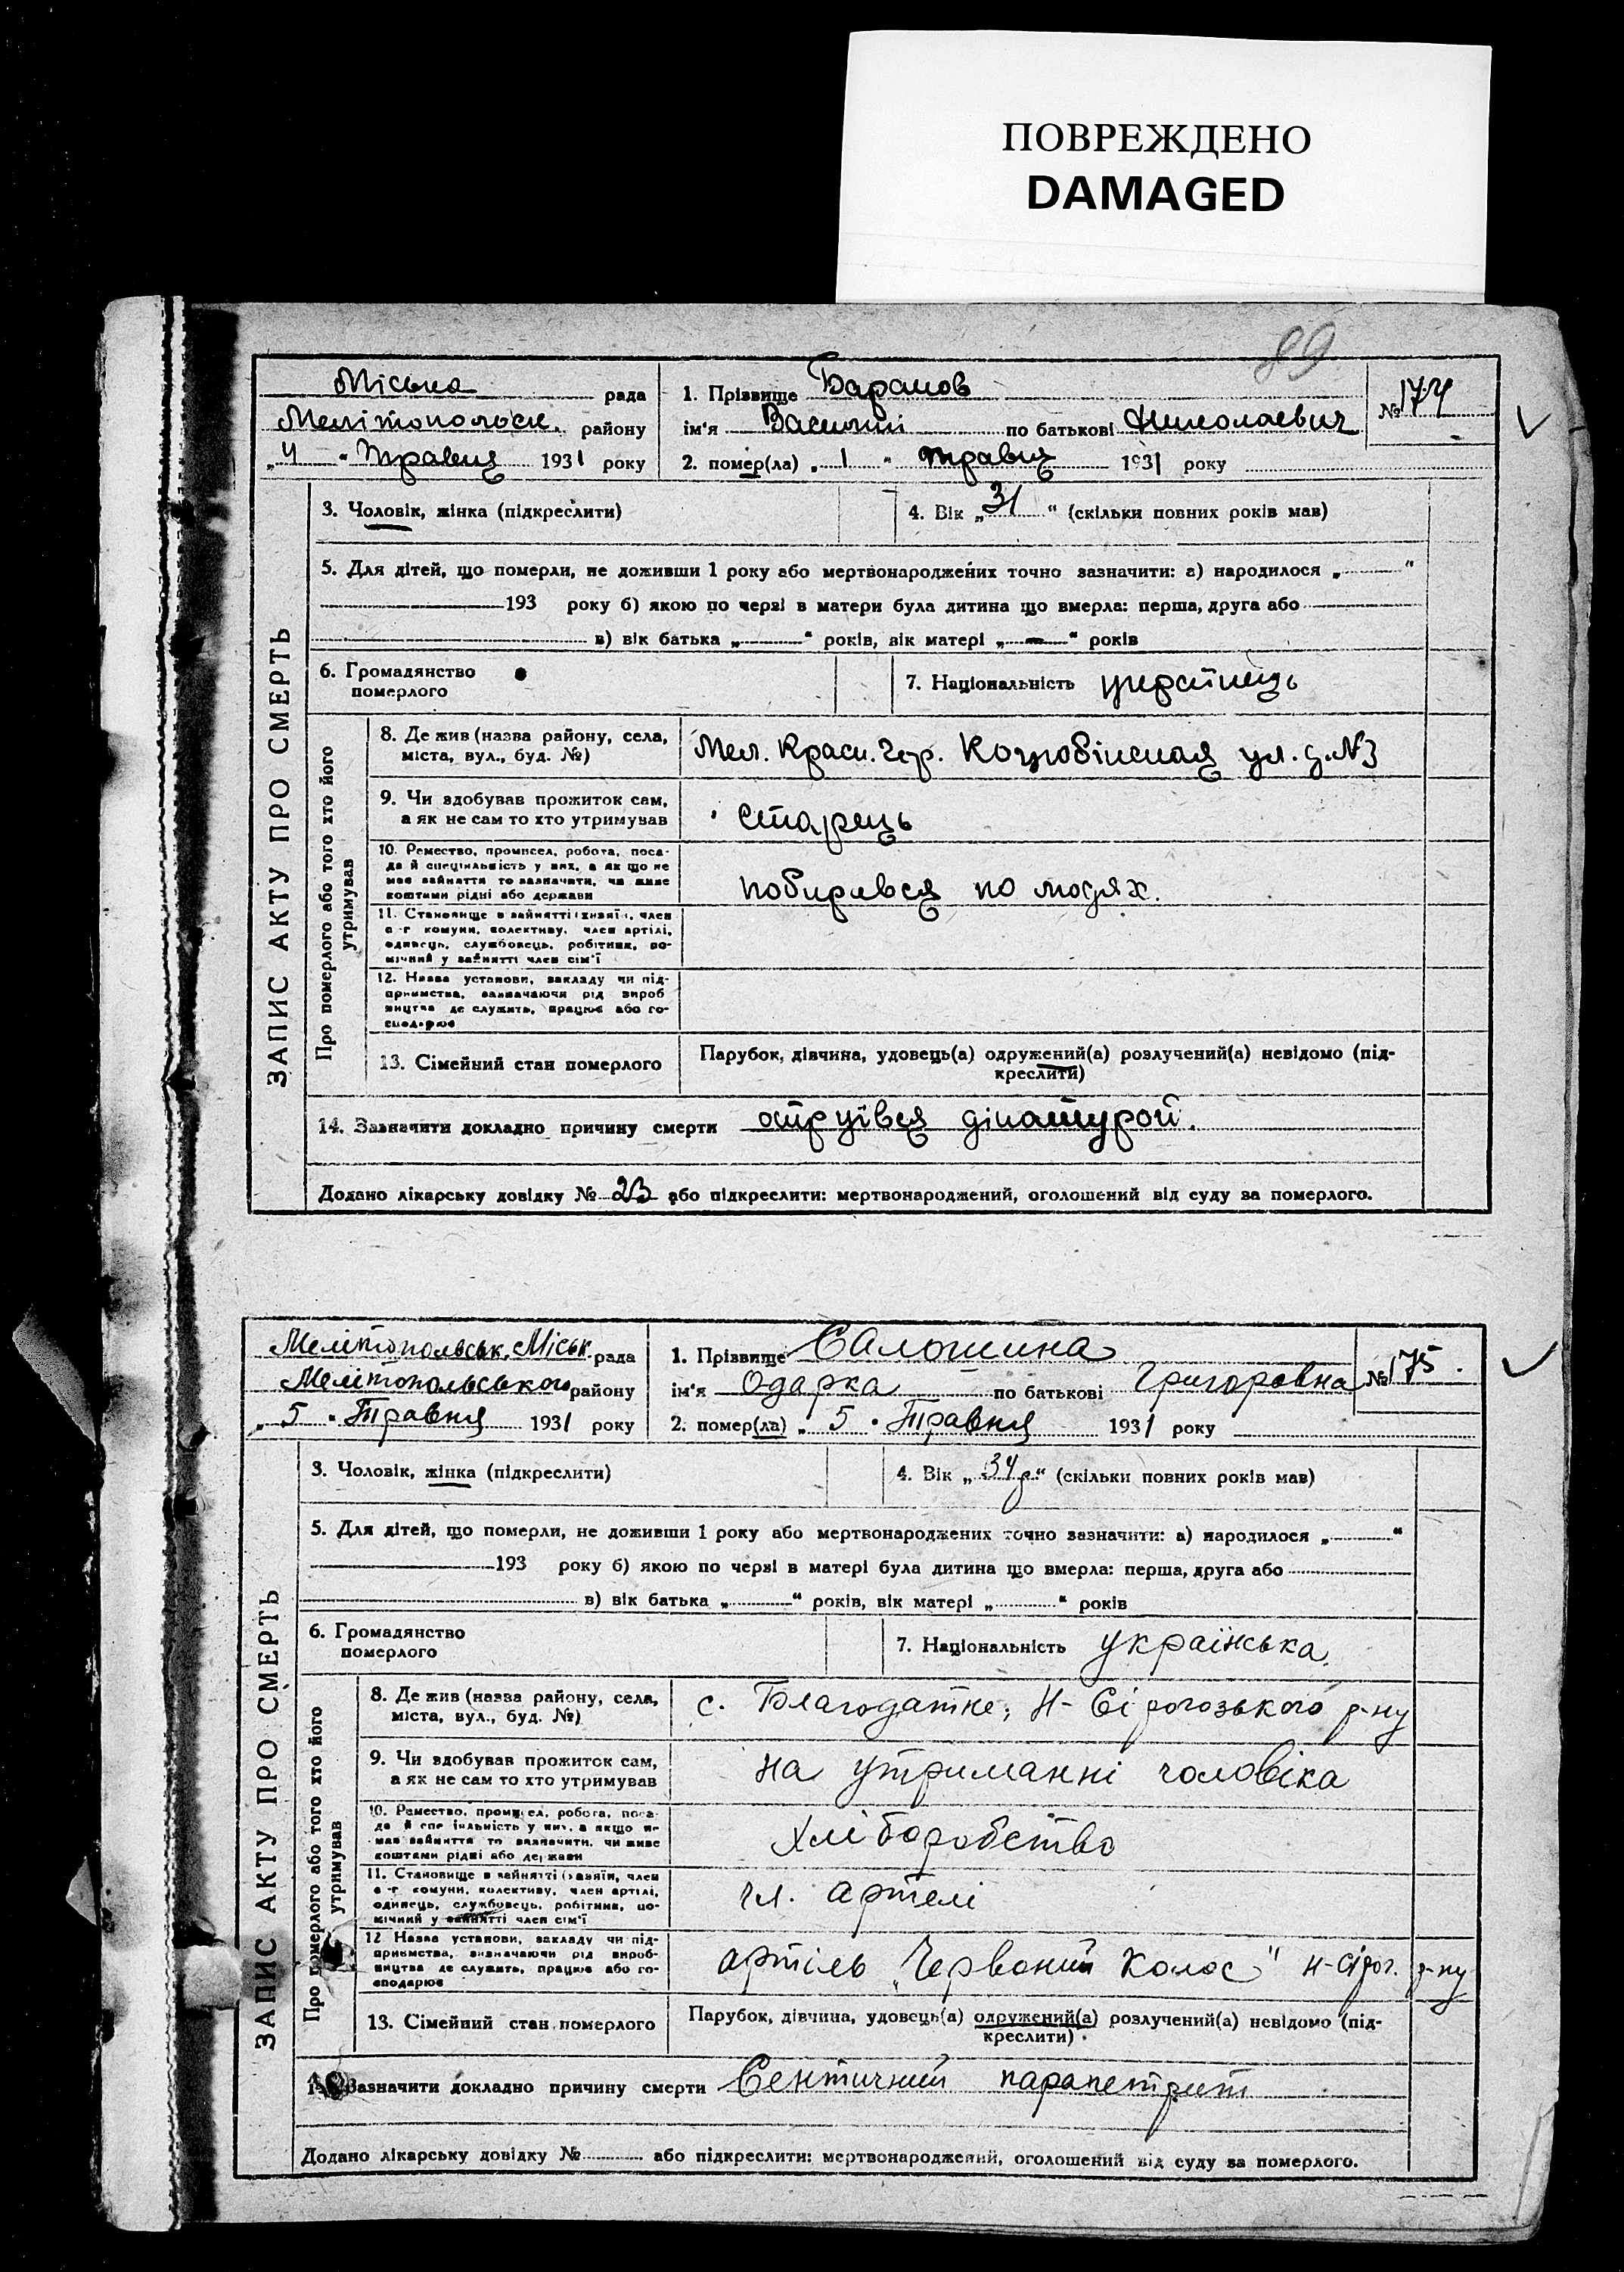 ПОВРЕЖДЕНО
DAMAGED
89
Міська рада
Мелітопольськ. району
„4" Травня 1931 року
1. Прізвище Баранов
ім'я Василий по батькові Николаевич
№ 174
2. помер(ла) „1" травня 1931 року
ЗАПИС АКТУ ПРО СМЕРТЬ
3. Чоловік, жінка (підкреслити)
4. Вік „31" (скільки повних років мав)
5. Для дітей, що померли, не доживши 1 року або мертвонароджених точно зазначити: а) народилося „ "
193 року б) якою по черзі в матери була дитина що вмерла: перша, друга або
в) вік батька „ " років, вік матері „ — " років
6. Громадянство
померлого
7. Національність українець
Про померлого або того хто його
утримував
8. Де жив (назва району, села,
міста, вул., буд. №)
Мел. Красн. ул. д. №3
9. Чи здобував прожиток сам,
а як не сам то хто утримував
старець
10. Ремество, промисел, робота, поса-
да й спеціяльність у них, а як що не
мав зайняття то зазначити, чи живе
коштами рідні або держави
побирався по людях.
11. Становище в зайнятті (хазяїн, член
с-г комуни, колективу, член артілі,
одинець, службовець, робітник, по-
мічний у зайнятті член сім'ї
12. Назва установи, закладу чи під-
приємства, зазначаючи рід вироб
ництва де служить, працює або го-
сподарює
13. Сімейний стан померлого
Парубок, дівчина, удовець(а) одружений(а) розлучений(а) невідомо (під-
креслити)
14. Зазначити докладно причину смерти отруївся дінатурой.
Додано лікарську довідку № 23 або підкреслити: мертвонароджений, оголошений від суду за померлого.
Мелітопольськ. Міськ. рада
Мелітопольського району
„5" Травня 1931 року
1. Прізвище Салошина
ім'я Одарка по батькові Григоровна
№ 175.
2. помер(ла) „5" Травня 1931 року
ЗАПИС АКТУ ПРО СМЕРТЬ
3. Чоловік, жінка (підкреслити)
4. Вік „34 р" (скільки повних років мав)
5. Для дітей, що померли, не доживши 1 року або мертвонароджених точно зазначити: а) народилося „ "
193 року б) якою по черзі в матері була дитина що вмерла: перша, друга або
в) вік батька „ " років, вік матері „ " років
6. Громадянство
померлого
7. Національність українська.
Про померлого або того хто його
утримував
8. Де жив (назва району, села,
міста, вул., буд. №)
с. Благодатне, Н-Сірогозького р-ну
9. Чи здобував прожиток сам,
а як не сам то хто утримував
на утриманні чоловіка
10. Ремество, промисел, робота, поса-
да й спеціяльність у них, а якщо не
мав зайняття то зазначити, чи живе
коштами рідні або держави
хліборобство
11. Становище в зайнятті (хазяїн, член
с-г комуни, колективу, член артілі,
одинець, службовець, робітник, по-
мічний у зайнятті член сім'ї
чл. артелі
12 Назва установи, закладу чи під-
приємства, зазначаючи рід вироб-
ництва де служить, працює або го-
сподарює
артіль „Червоний Колос" Н-Сірог. р-ну
13. Сімейний стан померлого
Парубок, дівчина, удовець(а) одружений(а) розлучений(а) невідомо (під-
креслити)
14. Зазначити докладно причину смерти Септичний
Додано лікарську довідку № або підкреслити: мертвонароджений, оголошений від суду за померлого.